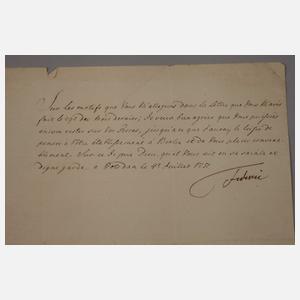 Sur les motifs que Vous M'allegues dans la lettre que Vous M'avés
fait le 29e du mois dernier, Je veux bien agréer que Vous puissiés
encore rester sur Vos Terres, jusqu'à ce que J'auray le loisir de
penser à Votre établissement à Berlin et de Vous placer convena-
blement. Sur ce Je prie Dieu, qu'il Vous ait en sa sainte et
digne garde. à Potsdam le Juillet
Federic